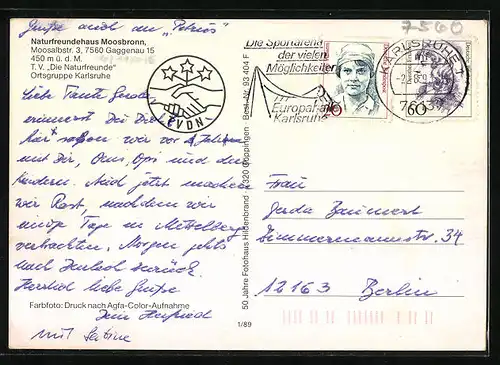 Grüße auch an „Petrus"
7560
Naturfreundehaus Moosbronn,
Moosalbstr. 3, 7560 Gaggenau 15
450 m ü. d. M.
T. V. „Die Naturfreunde"
Ortsgruppe Karlsruhe
LEVDNI
Liebe Tante Gerda,
erinnerst Du Dich,
hier saßen wir vor Jahren
mit Dir, Oma, Opi und den
Kindern. Und jetzt machen
wir Rast, nachdem wir
einige Tage in Mittelberg
verbrachten. Morgen geht's
nach zurück.
Herzlich liebe Grüße
Dein
mit Sabine
Farbfoto: Druck nach Agfa-Color-Aufnahme
1/89
50 Jahre Fotohaus Hildenbrand 7320 Göppingen Best.-Nr. 93 404 F
Die Sportarena
der vielen
Möglichkeiten
Europahalle
Karlsruhe
KARLSRUHE 1
60
Frau
Gerda Baumert
Zimmermannstr. 34
12163 Berlin